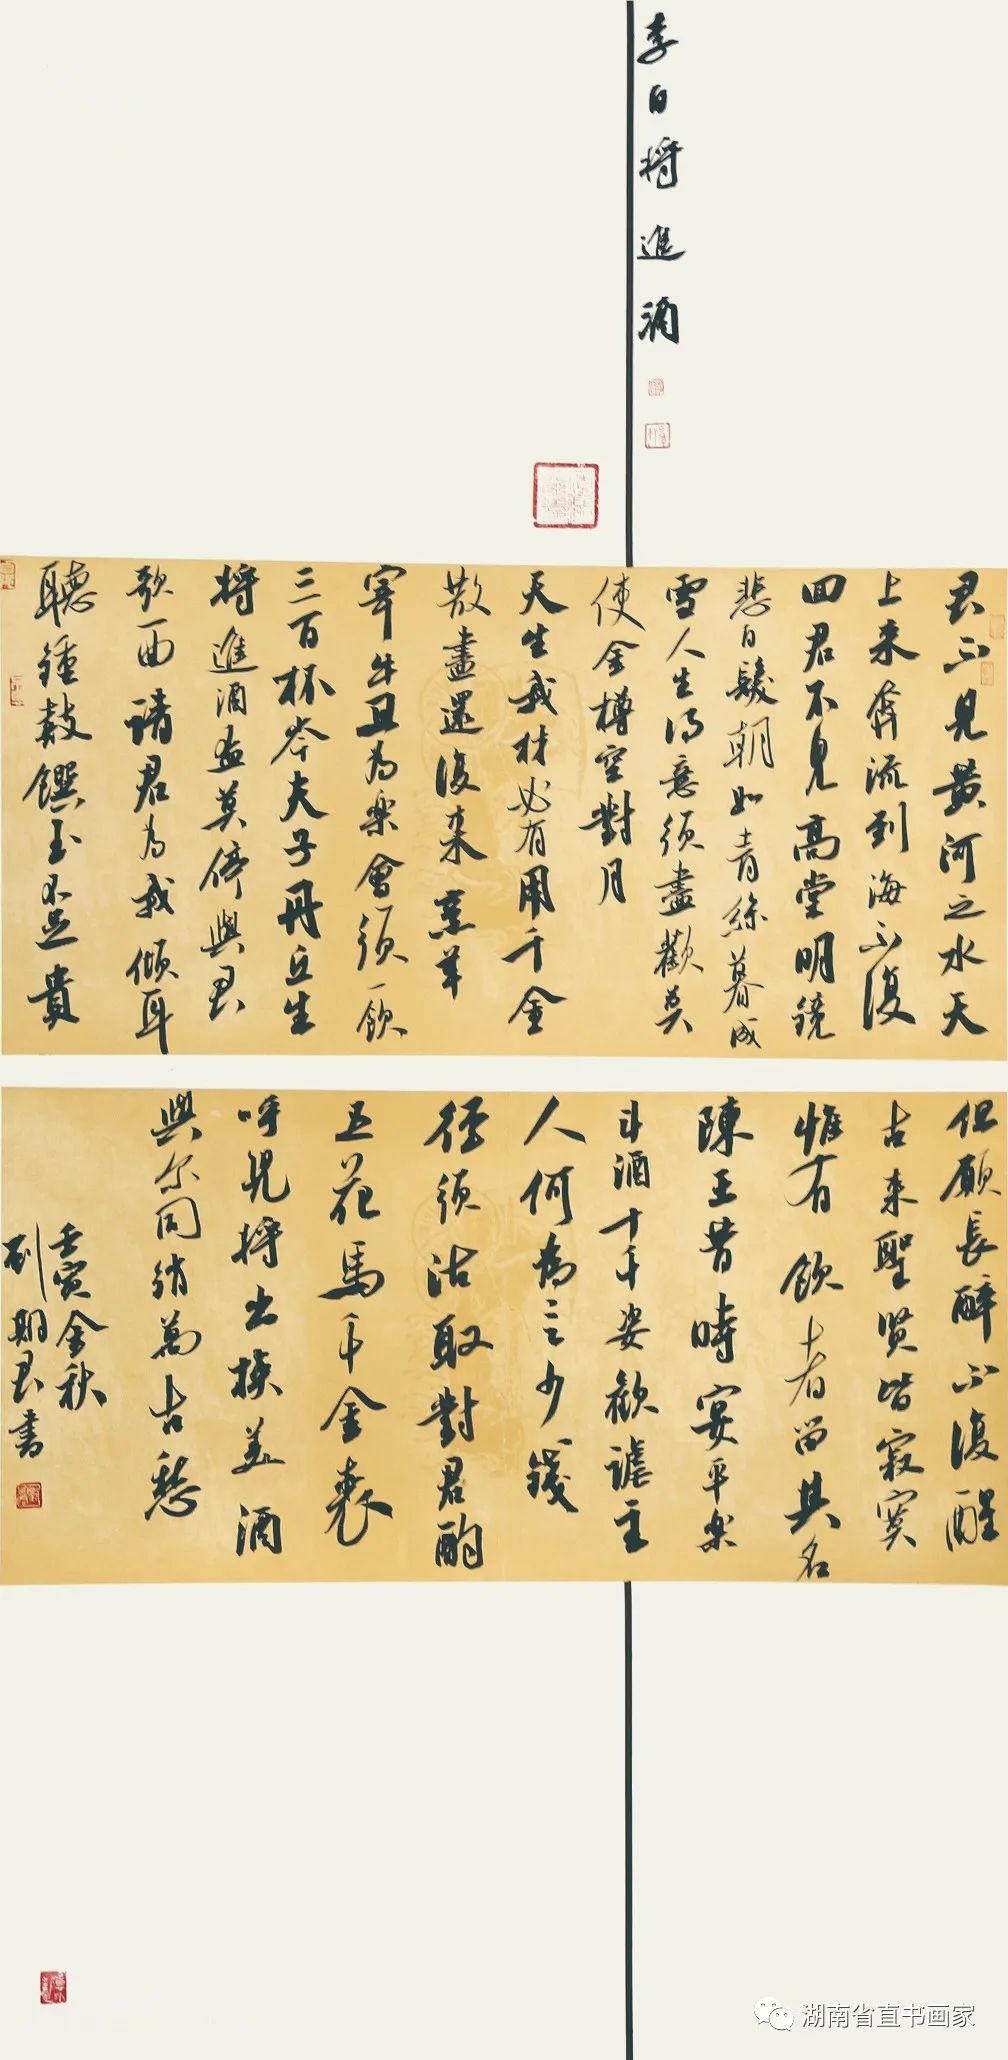 李白將進酒
君不見黄河之水天
上来奔流到海不復
回君不見高堂明鏡
悲白髮朝如青絲暮成
雪人生得意須盡歡莫
使金樽空對月
天生我材必有用千金
散盡還復来烹羊
宰牛且为樂會須一飲
三百杯岑夫子丹丘生
將進酒盃莫停與君
歌一曲請君为我傾耳
聽鐘鼓饌玉不足貴
但願長醉不復醒
古来聖賢皆寂寞
惟有飲者留其名
陳王昔時宴平樂
斗酒十千恣歡謔主
人何為言少錢
徑須沽取對君酌
五花馬千金裘
呼兒將出換美酒
與尔同銷萬古愁
壬寅金秋
刘期君書
湖南省直书画家